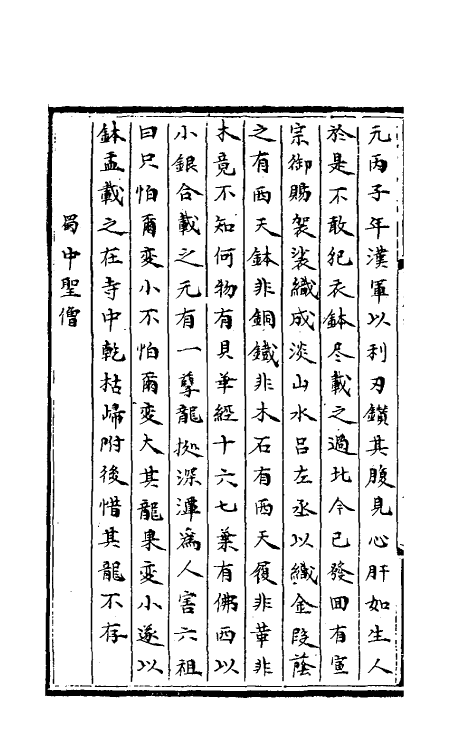 元丙子年漢軍以利刃鑚其腹見心肝如生人
於是不敢犯衣鉢尽載之過北今已發囬有宣
宗御賜袈裟織成淡山水呂左丞以織金段蔭
之有西天鉢非銅鐵非木石有西天履非革非
木竟不知何物有貝葉經十六七葉有佛西以
小銀合載之元有一孽龍㧣深潭為人害六祖
曰只怕爾变小不怕爾变大其龍果变小遂以
鉢盂載之在寺中乾枯歸附後惜其龍不存
蜀中聖僧